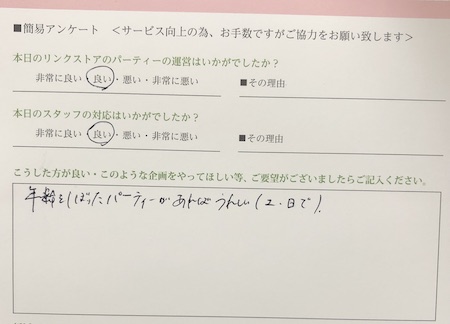 ■簡易アンケート ＜サービス向上の為、お手数ですがご協力をお願い致します＞
本日のリンクストアのパーティーの運営はいかがでしたか？
非常に良い・良い・悪い・非常に悪い ■その理由
本日のスタッフの対応はいかがでしたか？
非常に良い・良い・悪い・非常に悪い ■その理由
こうした方が良い・このような企画をやってほしい等、ご要望がございましたらご記入ください。
年齢をしばったパーティーがあればうれしい(土・日で)。